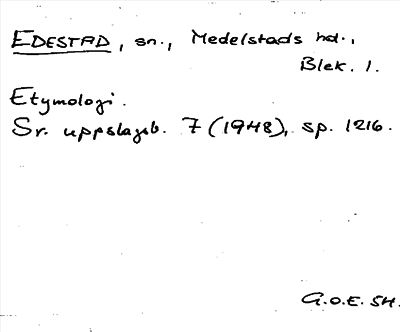 EDESTAD, sn., Medelstads hd.,
Blek. l.
Etymologi.
Sv. uppslagsb. 7 (1948), sp. 1216.
G.O.E. SH.